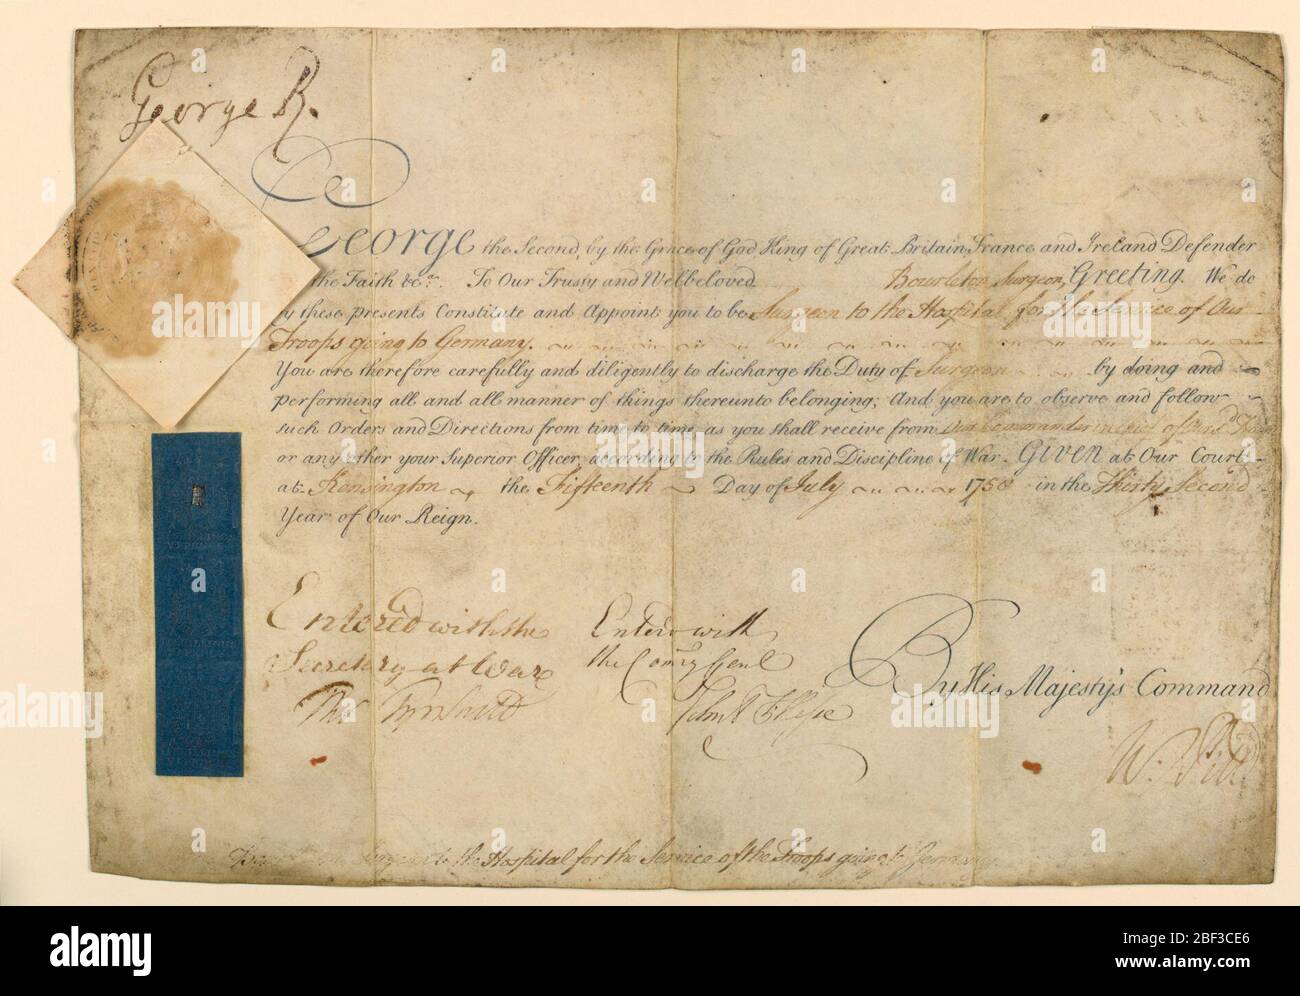 George R.
George the Second, by the Grace of God King of Great Britain, France and Ireland Defender
the Faith &c.a To Our Trusty and Welbeloved Bourleton, Surgeon, Greeting. We do
by these presents Constitute and Appoint you to be Surgeon to the Hospital for the Service of Our
Troops going to Germany.
You are therefore carefully and diligently to discharge the Duty of Surgeon by doing and
performing all and all manner of things thereunto belonging; And you are to observe and follow
such Orders and Directions from time to time, as you shall receive from Our Commander in Chief of
or any other your Superior Officer, according to the Rules and Discipline of War. GIVEN at Our Court
at Kensington the Fifteenth Day of July 1758 in the Thirty Second
Year of Our Reign.
Entered with the
Secretary at War
Entered with
the Com.ry Gen.l
By His Majesty's Command
W. Pitt
Surgeon to the Hospital for the Service of the Troops going to Germany
alamy
Image ID: 2BF3CE6
www.alamy.com